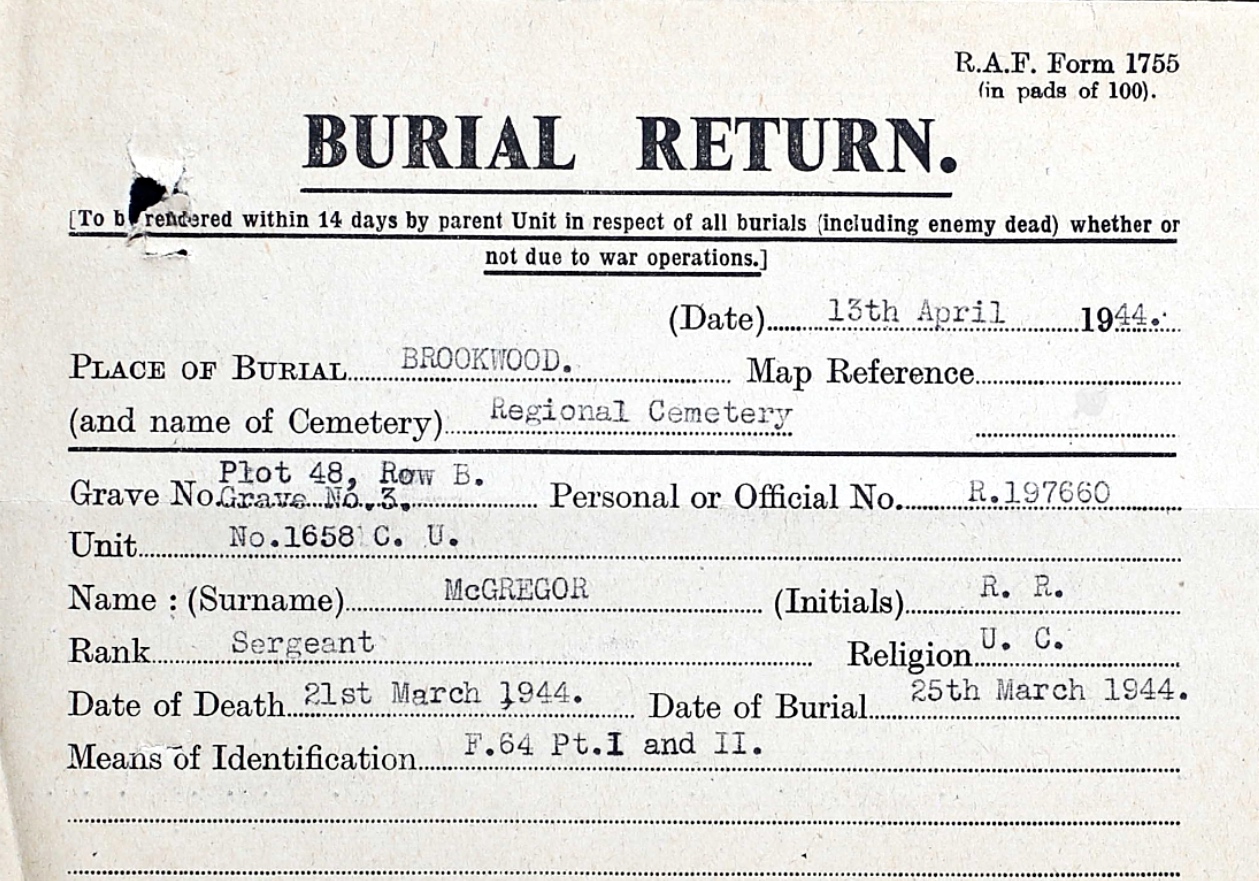 R.A.F. Form 1755
(in pads of 100).
BURIAL RETURN.
[To be rendered within 14 days by parent Unit in respect of all burials (including enemy dead) whether or
not due to war operations.]
(Date) 13th April 1944.
PLACE OF BURIAL BROOKWOOD. Map Reference
(and name of Cemetery) Regional Cemetery
Plot 48, Row B.
Grave No. Grave No.3. Personal or Official No. R.197660
Unit No.1658 C. U.
Name : (Surname) McGREGOR (Initials) R. R.
Rank Sergeant Religion U. C.
Date of Death 21st March 1944. Date of Burial 25th March 1944.
Means of Identification F.64 Pt.I and II.